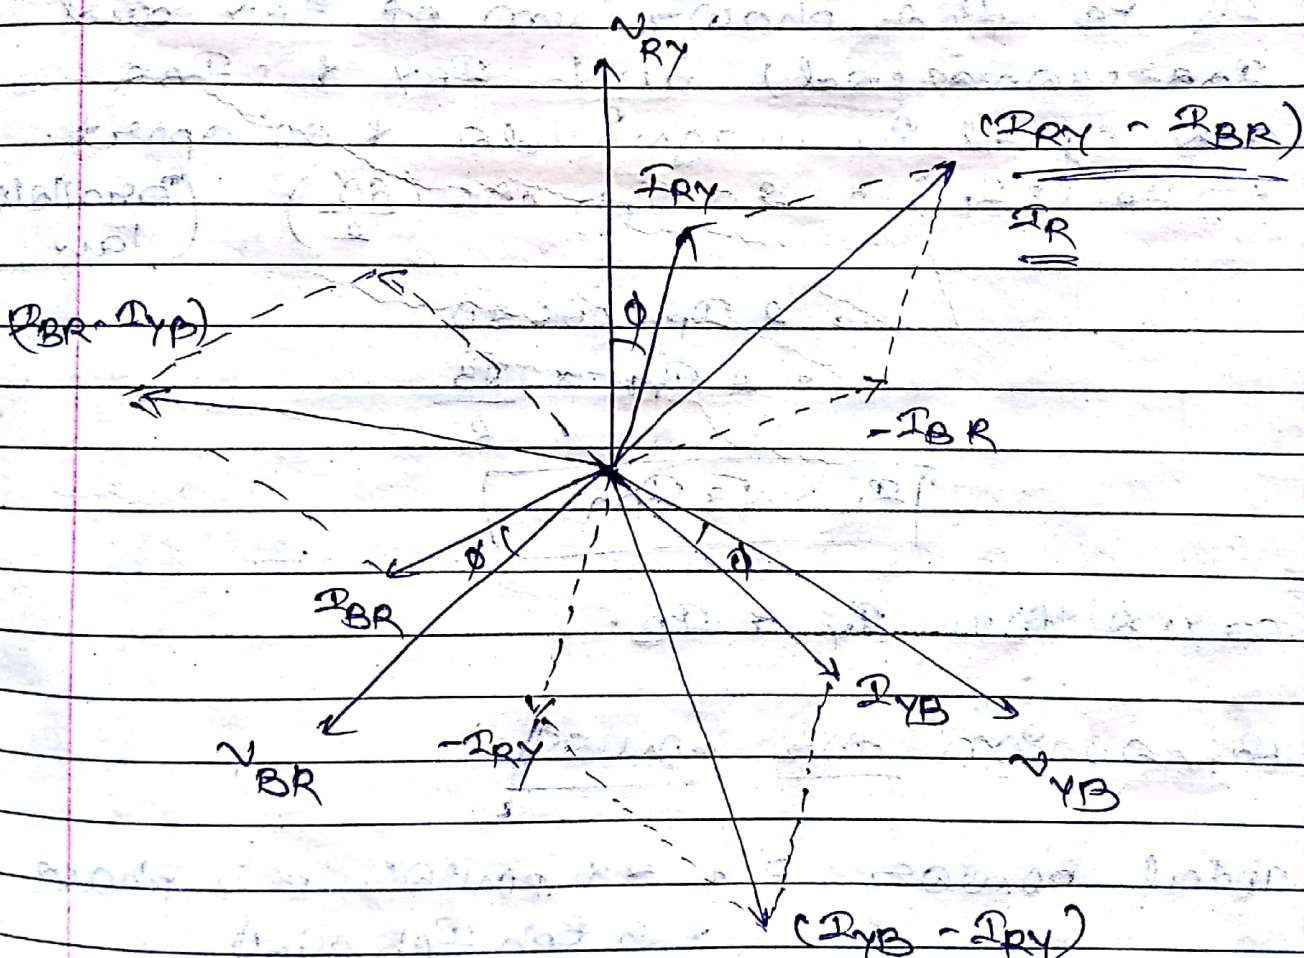 V_RY
(I_RY - I_BR)
I_RY
I_R
φ
(I_BR - I_YB)
-I_BR
φ
φ
I_BR
I_YB
-I_RY
V_BR
V_YB
(I_YB - I_RY)